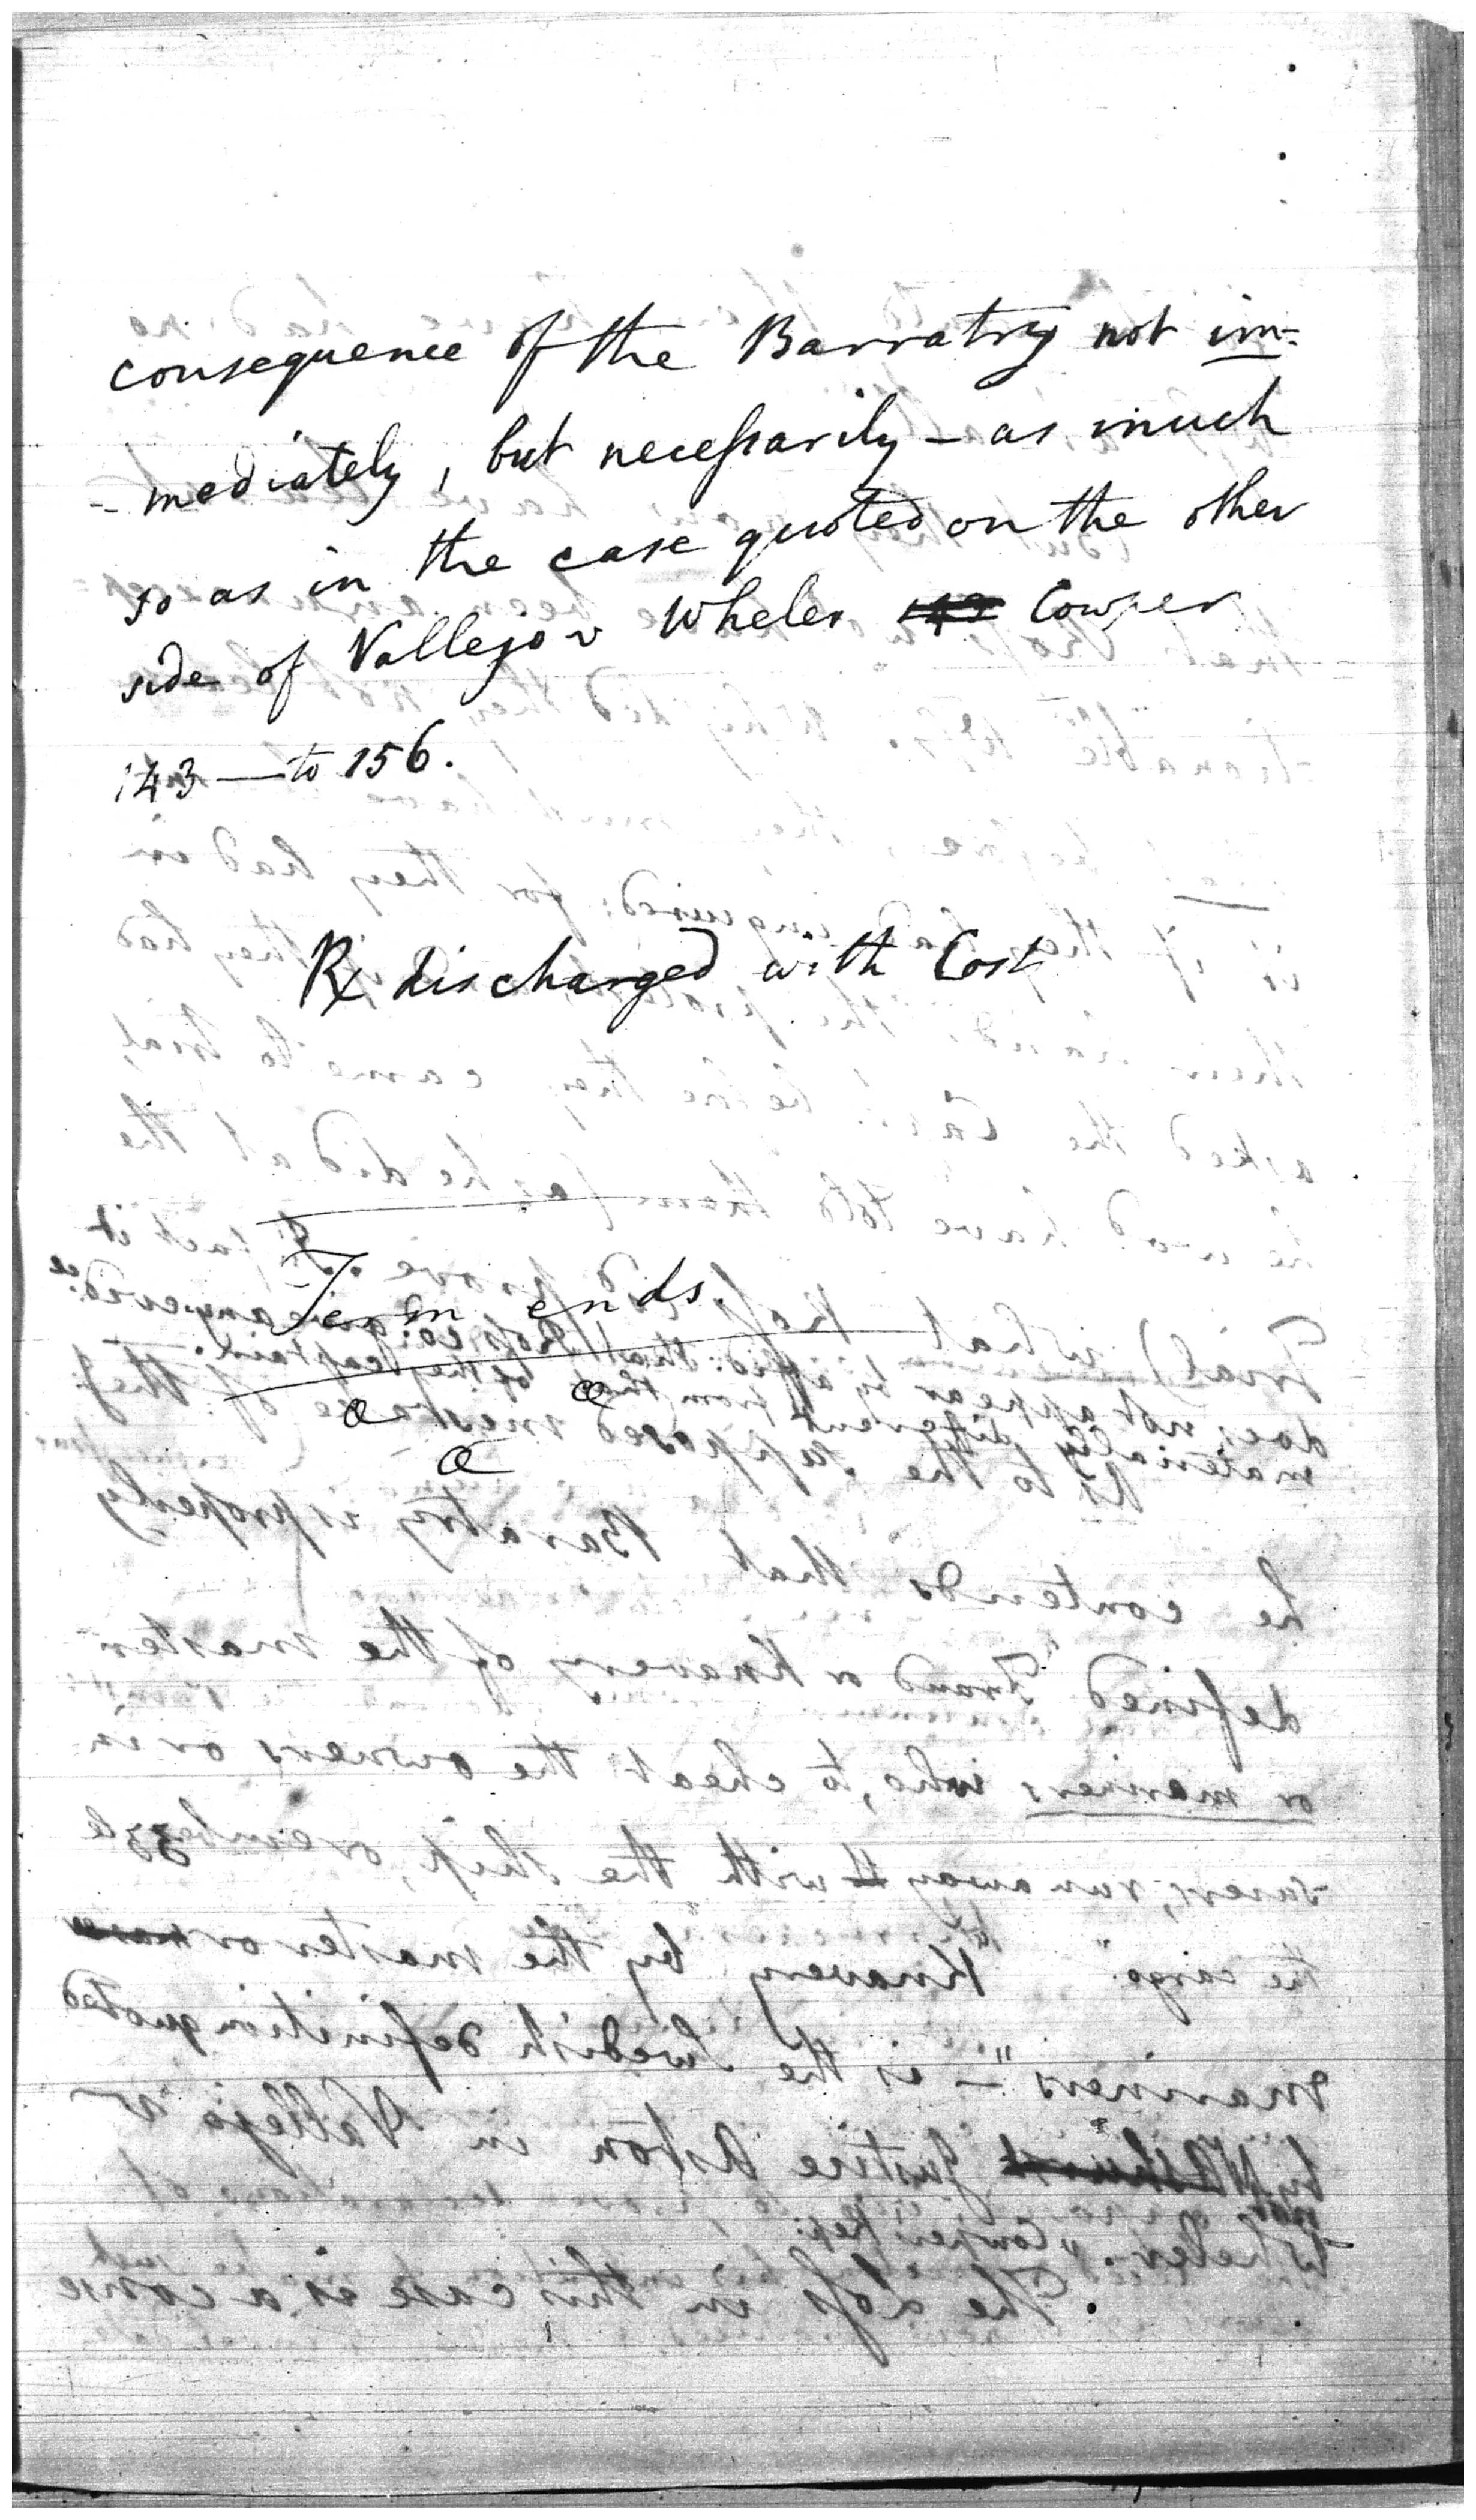 consequence of the Barratry not im=
-mediately, but necessarily – as much
so as in the case quoted on the other
side of Vallejo v Wheler Cowper
143 — to 156.
discharged with Cost
Term ends.
a a
a